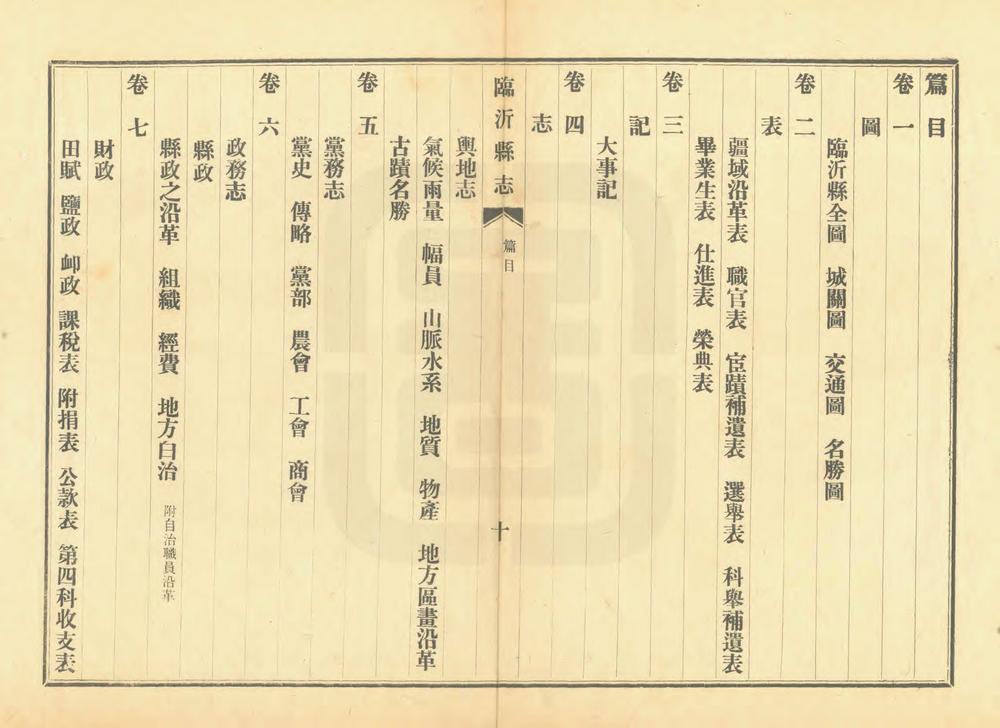 篇目
卷一
圖
臨沂縣全圖　城關圖　交通圖　名勝圖
卷二
表
疆域沿革表　職官表　宦蹟補遺表　選舉表　科舉補遺表
畢業生表　仕進表　榮典表
卷三
記
大事記
卷四
志
臨沂縣志　篇目　十
輿地志
氣候雨量　幅員　山脈水系　地質　物產　地方區畫沿革
古蹟名勝
卷五
黨務志
黨史　傳略　黨部　農會　工會　商會
卷六
政務志
縣政
縣政之沿革　組織　經費　地方自治　附自治職員沿革
卷七
財政
田賦　鹽政　卹政　課稅表　附捐表　公款表　第四科收支表